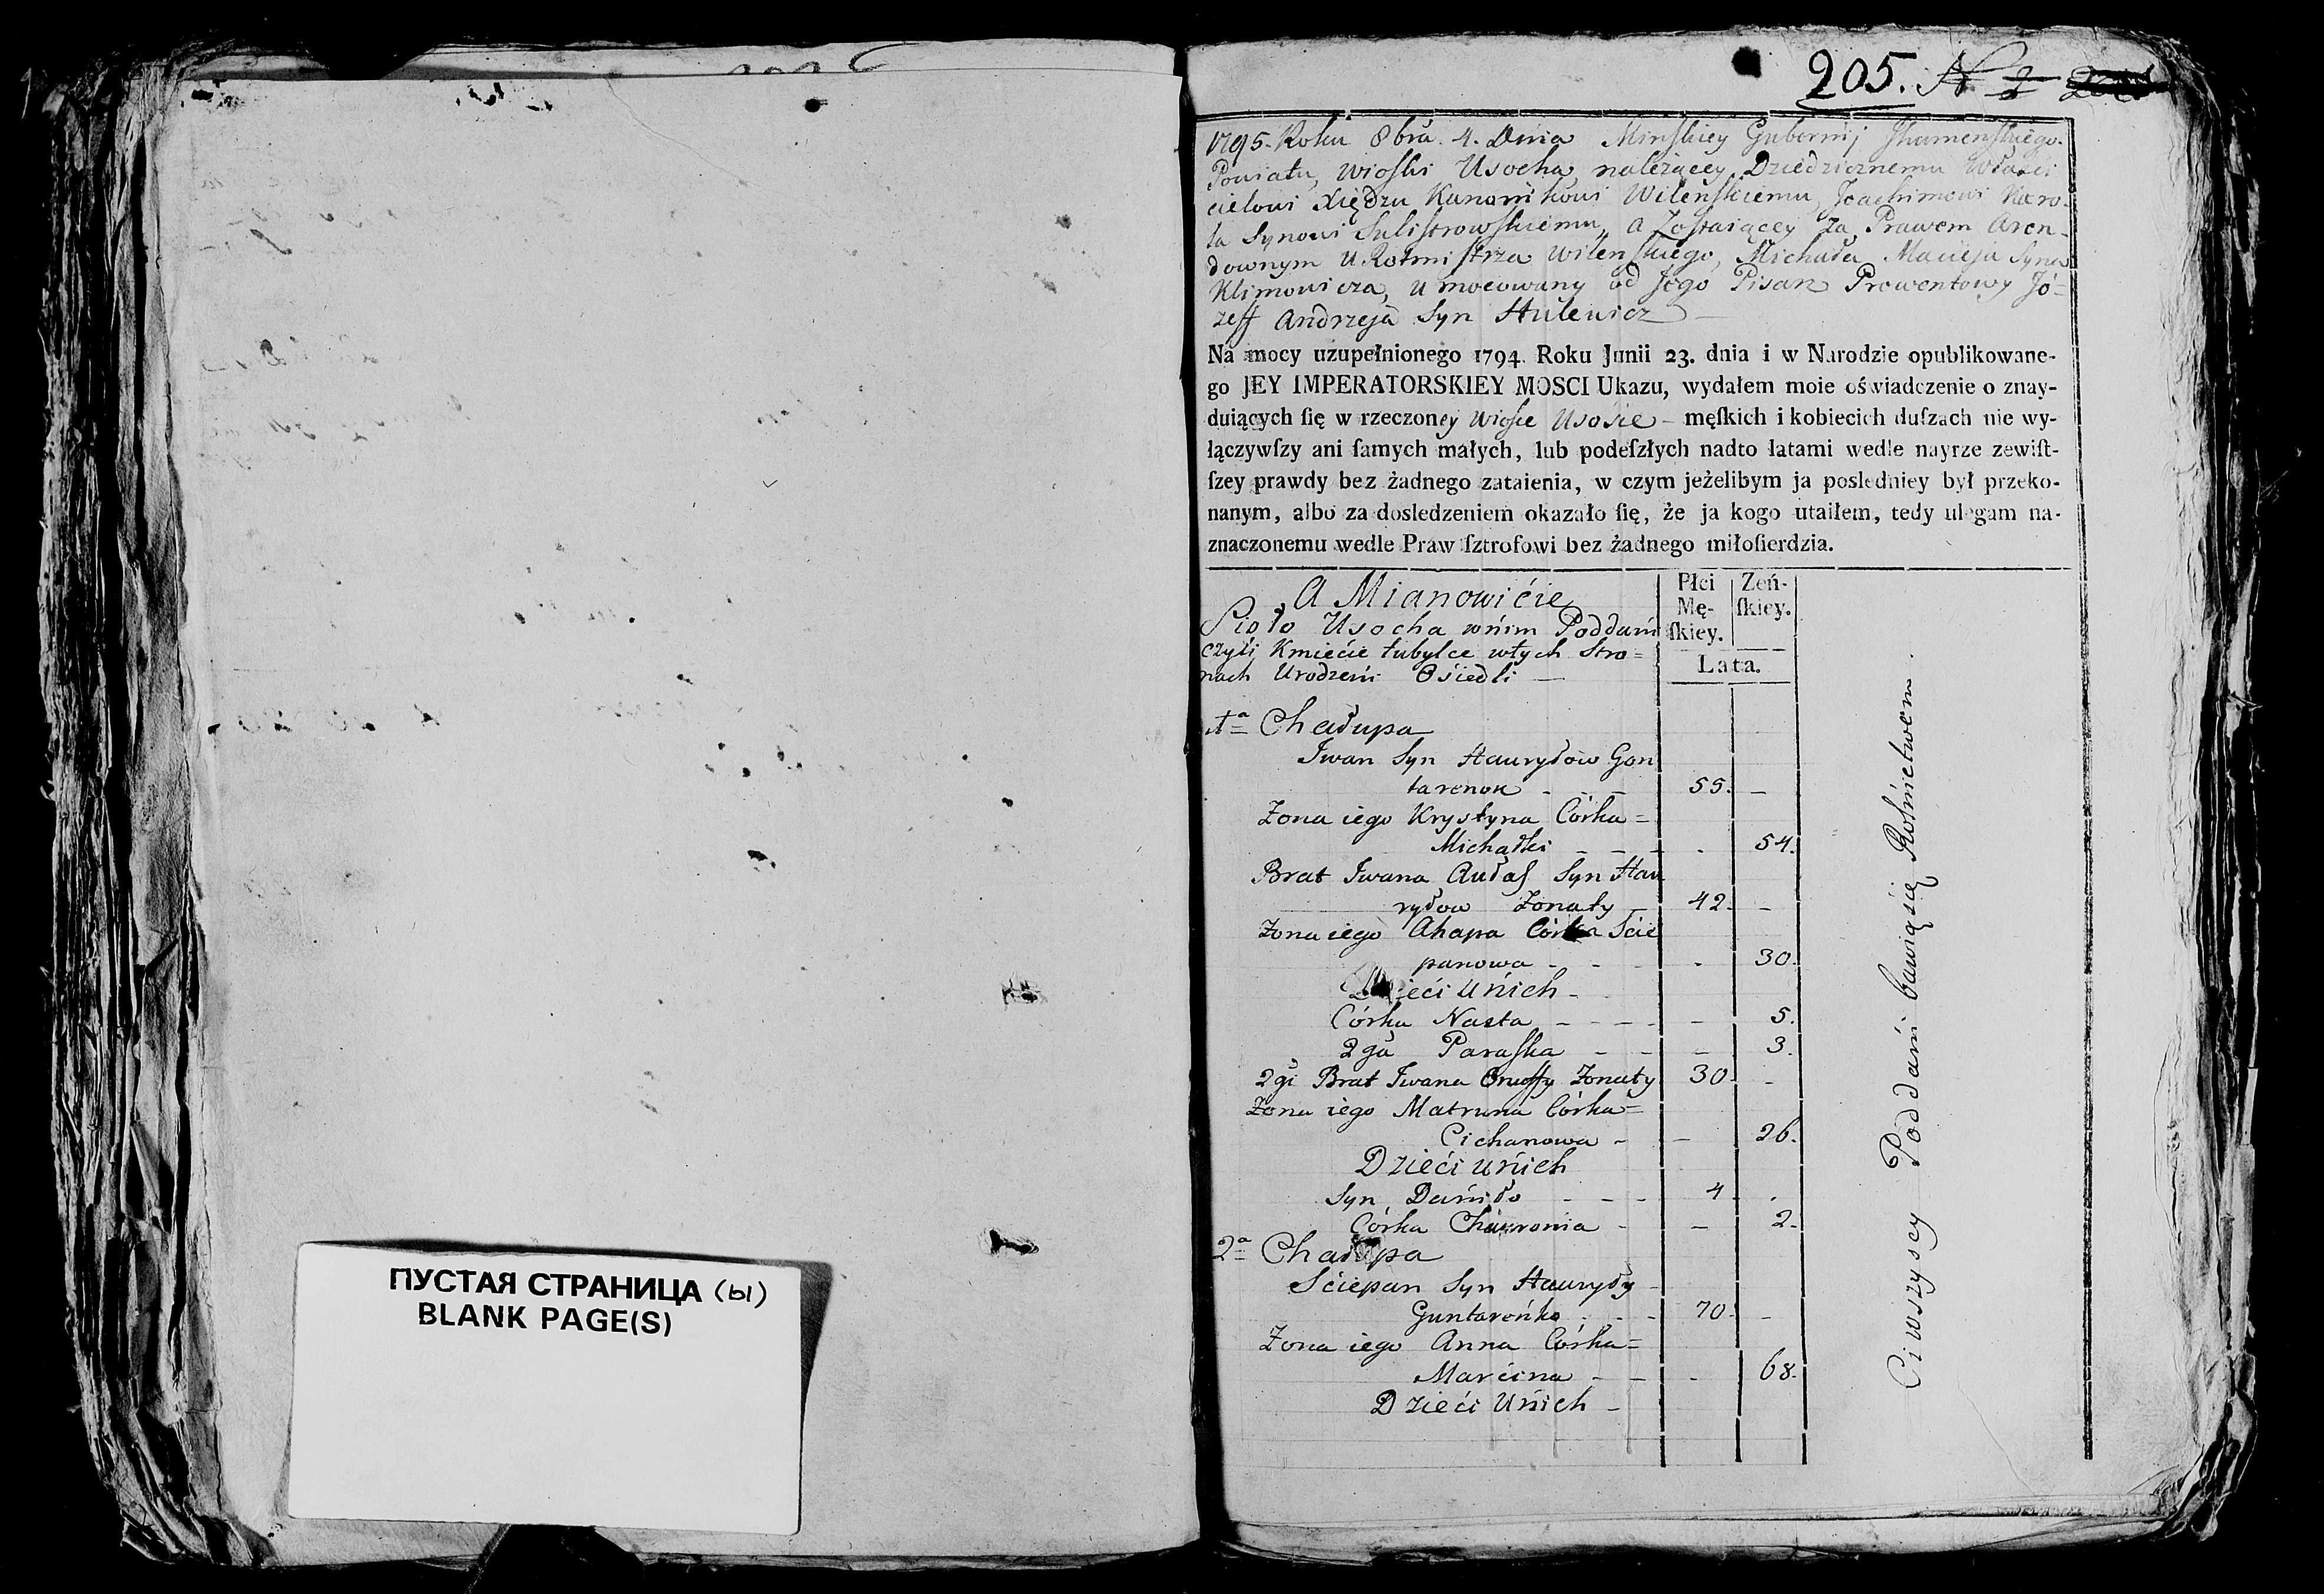 205. N 2
1795. Roku 8bra. 4. Dnia Minskiey Gubernij Jhumenskiego.
Powiatu, wioski Usocha, należącey Dziedzicznemu Właści
cielowi Xiędzu Kanonikowi Wileńskiemu, Joachimowi Karo-
la Synowi Sulistrowskiemu, a Zostaiącey za Prawem Aren-
downym u Rotmistrza wilenskiego, Michała Macieja Syna
Klimowicza, umocowany od Jego Pisarz Prowentowy Jó-
zeff Andrzeja Syn Hulewicz —
Na mocy uzupełnionego 1794 Roku Junii 23. dnia i w Narodzie opublikowane-
go JEY IMPERATORSKIEY MOSCI Ukazu, wydałem moie oświadczenie o znay-
duiących ſię w rzeczoney wiosce Usosie – męſkich i kobiecich duſzach nie wy-
łączywſzy ani ſamych małych, lub podeſzłych nadto łatami wedle nayrze zewiſt-
ſzey prawdy bez żadnego zataienia, w czym jeżelibym ja posledniey był przeko-
nanym, albo za dosledzeniem okazało ſię, że ja kogo utaiłem, tedy ulegam na-
znaczonemu wedle Praw ſztrofowi bez żadnego miłoſierdzia.
A Mianowićie
Płci Mę-ſkiey.
Zeń-ſkiey.
Lata.
Sioło Usocha wńim Poddańi
czyli Kmiecie tubylce wtych Stro=
nach Urodzeńi Ośiedli —
1=a Chałupa
Iwan Syn Hauryłow Gan
tarenok - - - 55. —
Żona iego Krystyna Córka=
Michałki - - - . 54.
Brat Iwana Audaſ Syn Hau
ryłow Żonaty 42. –
Żona iego Ahapa Córka Ście
panowa - - - . 30.
Dzieci uńich -
Córka Nasta - - - - – 5.
2ga Paraſka - - – 3.
2gi Brat Iwana Onuffry Żonaty 30. -
Żona iego Matruna Córka=
Cichanowa - – 26.
Dzieći uńich
Syn Dańiło - - - 4. .
Córka Chawronia - – 2.
2=a Chałupa
Śćiepan Syn Hauryły -
Guntareńko - - - 70. –
Żona iego Anna Córka=
Marćina - - - 68.
Dzieći Uńich -
Ci wszyscy Poddańi bawią się Rolńictwem.
ПУСТАЯ СТРАНИЦА (ы)
BLANK PAGE(S)